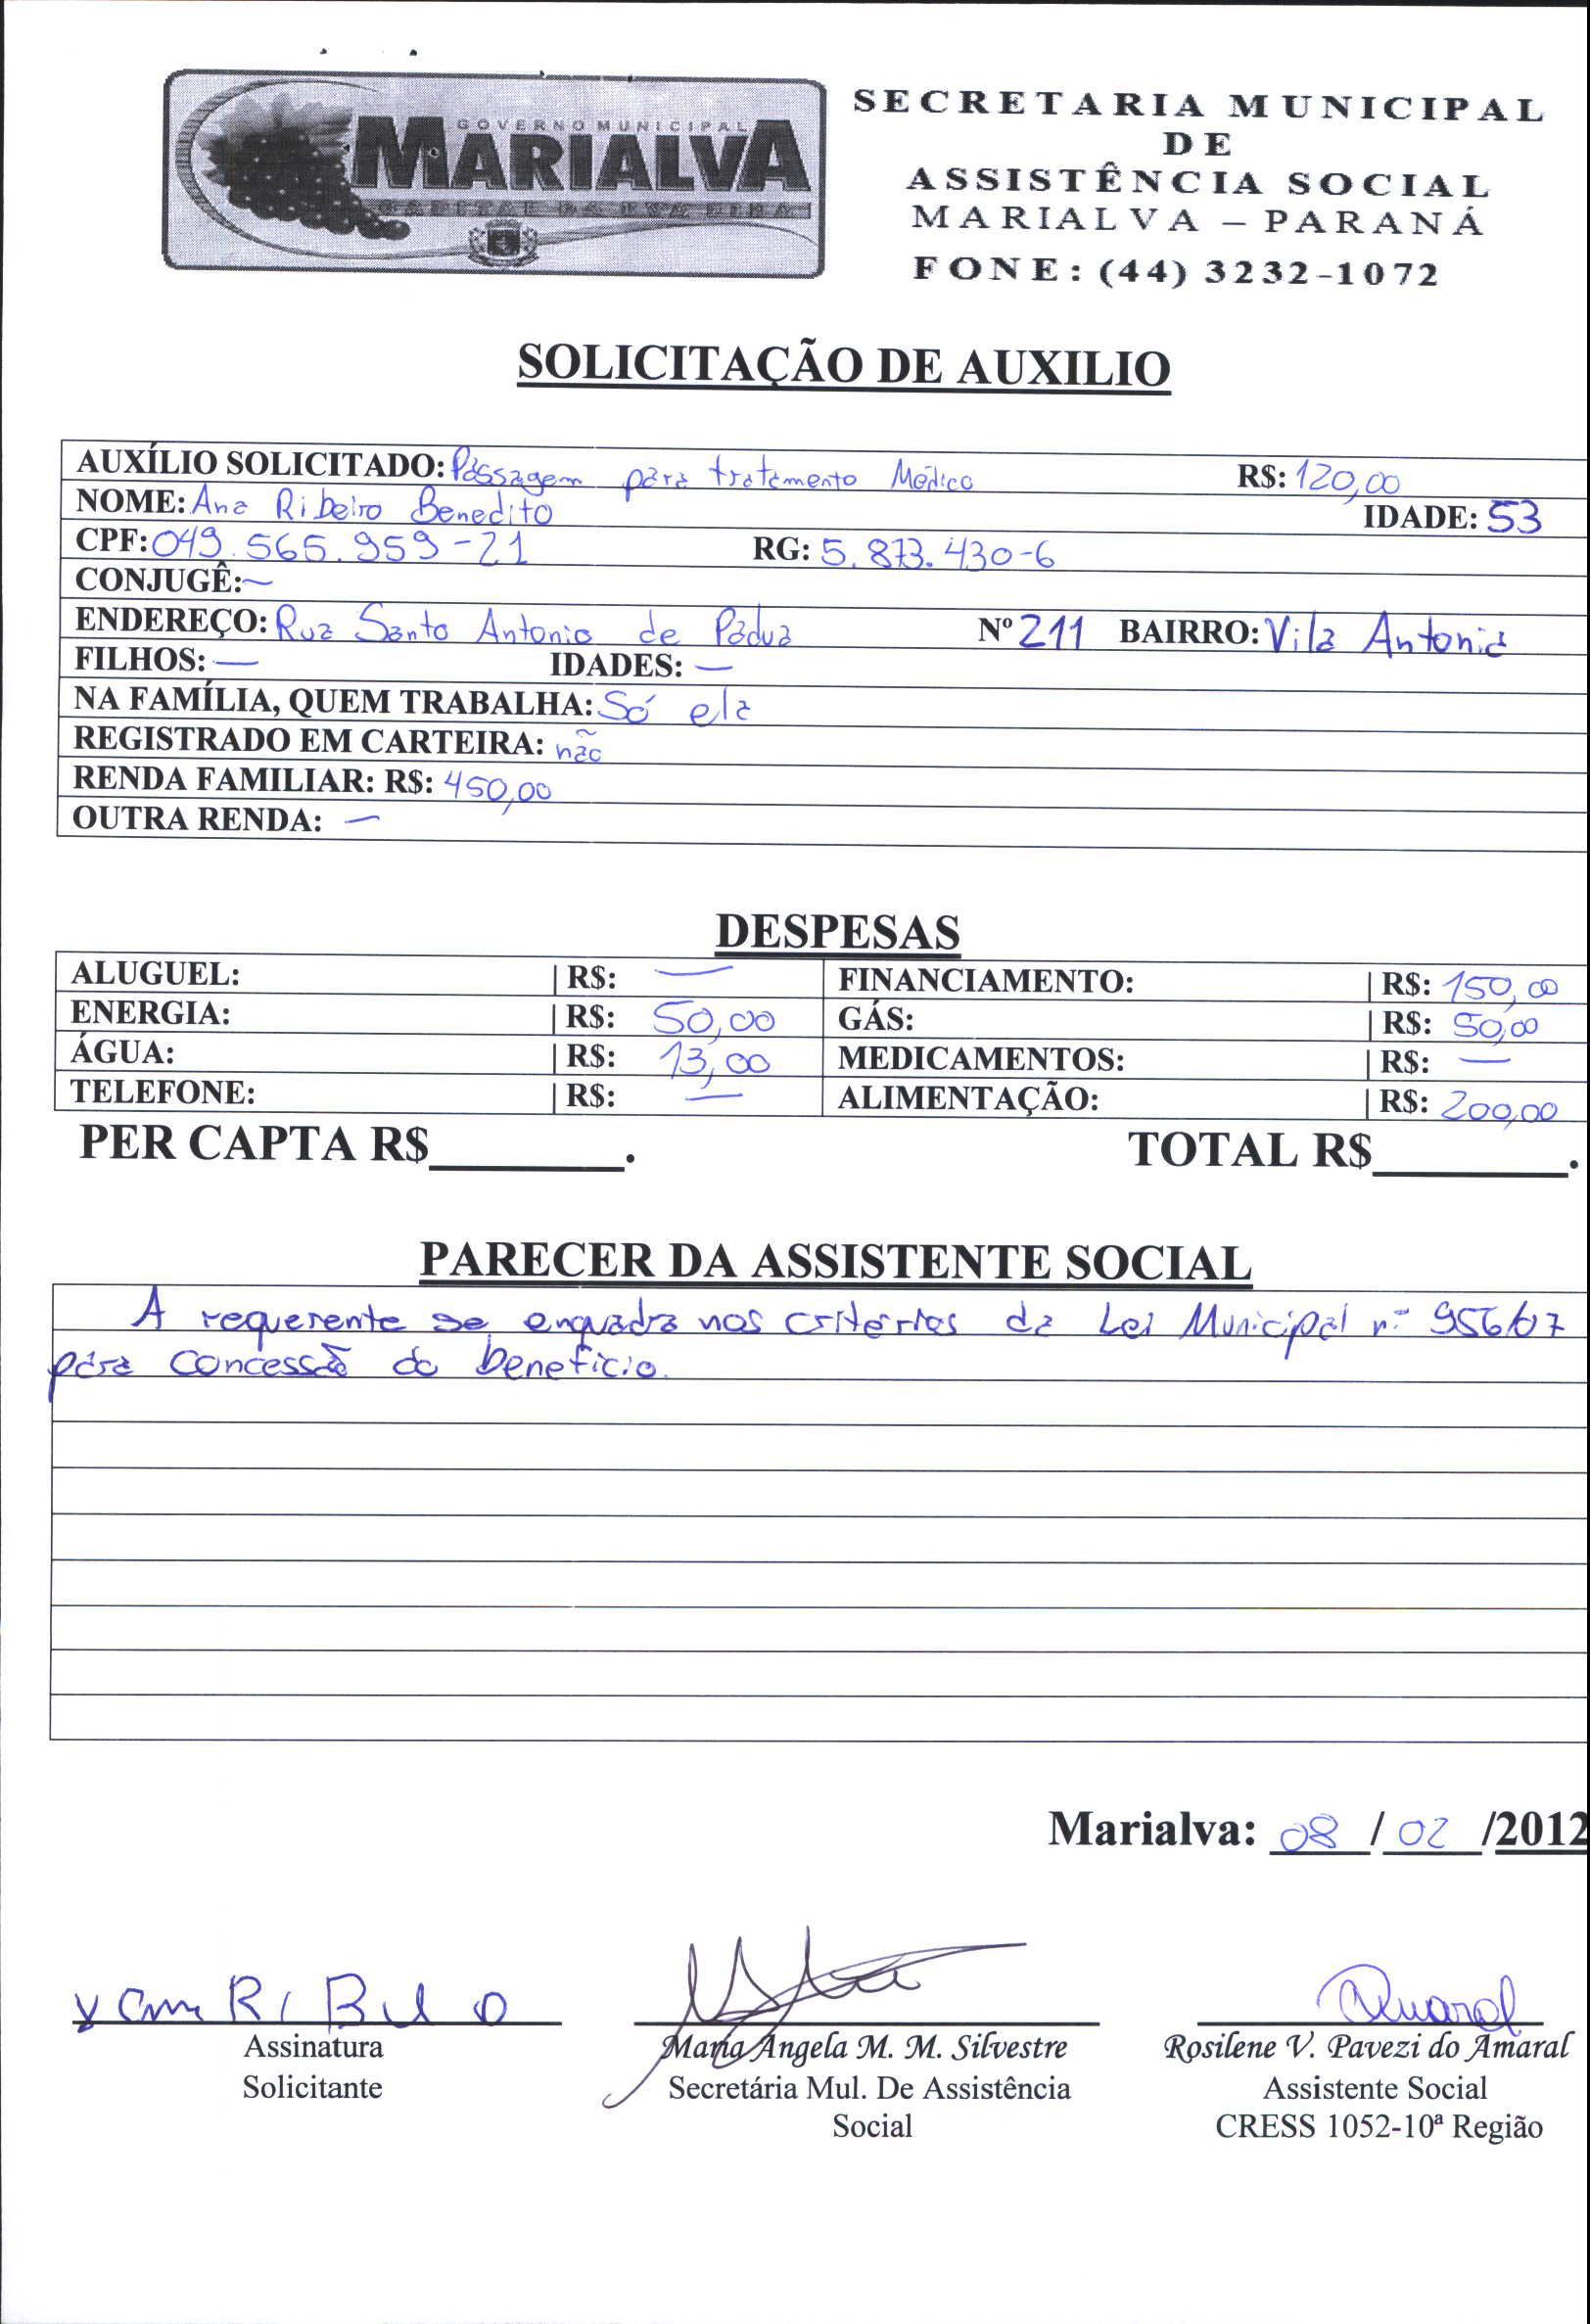 GOVERNO MUNICIPAL
MARIALVA
CAPITAL DA UVA FINA
SECRETARIA MUNICIPAL
DE
ASSISTÊNCIA SOCIAL
MARIALVA – PARANÁ
FONE: (44) 3232-1072
SOLICITAÇÃO DE AUXILIO
AUXÍLIO SOLICITADO: Passagem para tratamento Médico R$: 120,00
NOME: Ana Ribeiro Benedito IDADE: 53
CPF: 049.565.959-21 RG: 5.873.430-6
CONJUGÊ: ~
ENDEREÇO: Rua Santo Antonio de Pádua Nº 211 BAIRRO: Vila Antonia
FILHOS: — IDADES: —
NA FAMÍLIA, QUEM TRABALHA: Só ela
REGISTRADO EM CARTEIRA: não
RENDA FAMILIAR: R$: 450,00
OUTRA RENDA: —
DESPESAS
ALUGUEL: | R$: — FINANCIAMENTO: | R$: 150,00
ENERGIA: | R$: 50,00 GÁS: | R$: 50,00
ÁGUA: | R$: 13,00 MEDICAMENTOS: | R$: —
TELEFONE: | R$: — ALIMENTAÇÃO: | R$: 200,00
PER CAPTA R$________. TOTAL R$________.
PARECER DA ASSISTENTE SOCIAL
A requerente se enquadra nos critérios da Lei Municipal nº 956/07
para concessão do benefício.
Marialva: 08 / 02 /2012
Amaral
Assinatura Maria Angela M. M. Silvestre Rosilene V. Pavezi do Amaral
Solicitante Secretária Mul. De Assistência Assistente Social
Social CRESS 1052-10ª Região